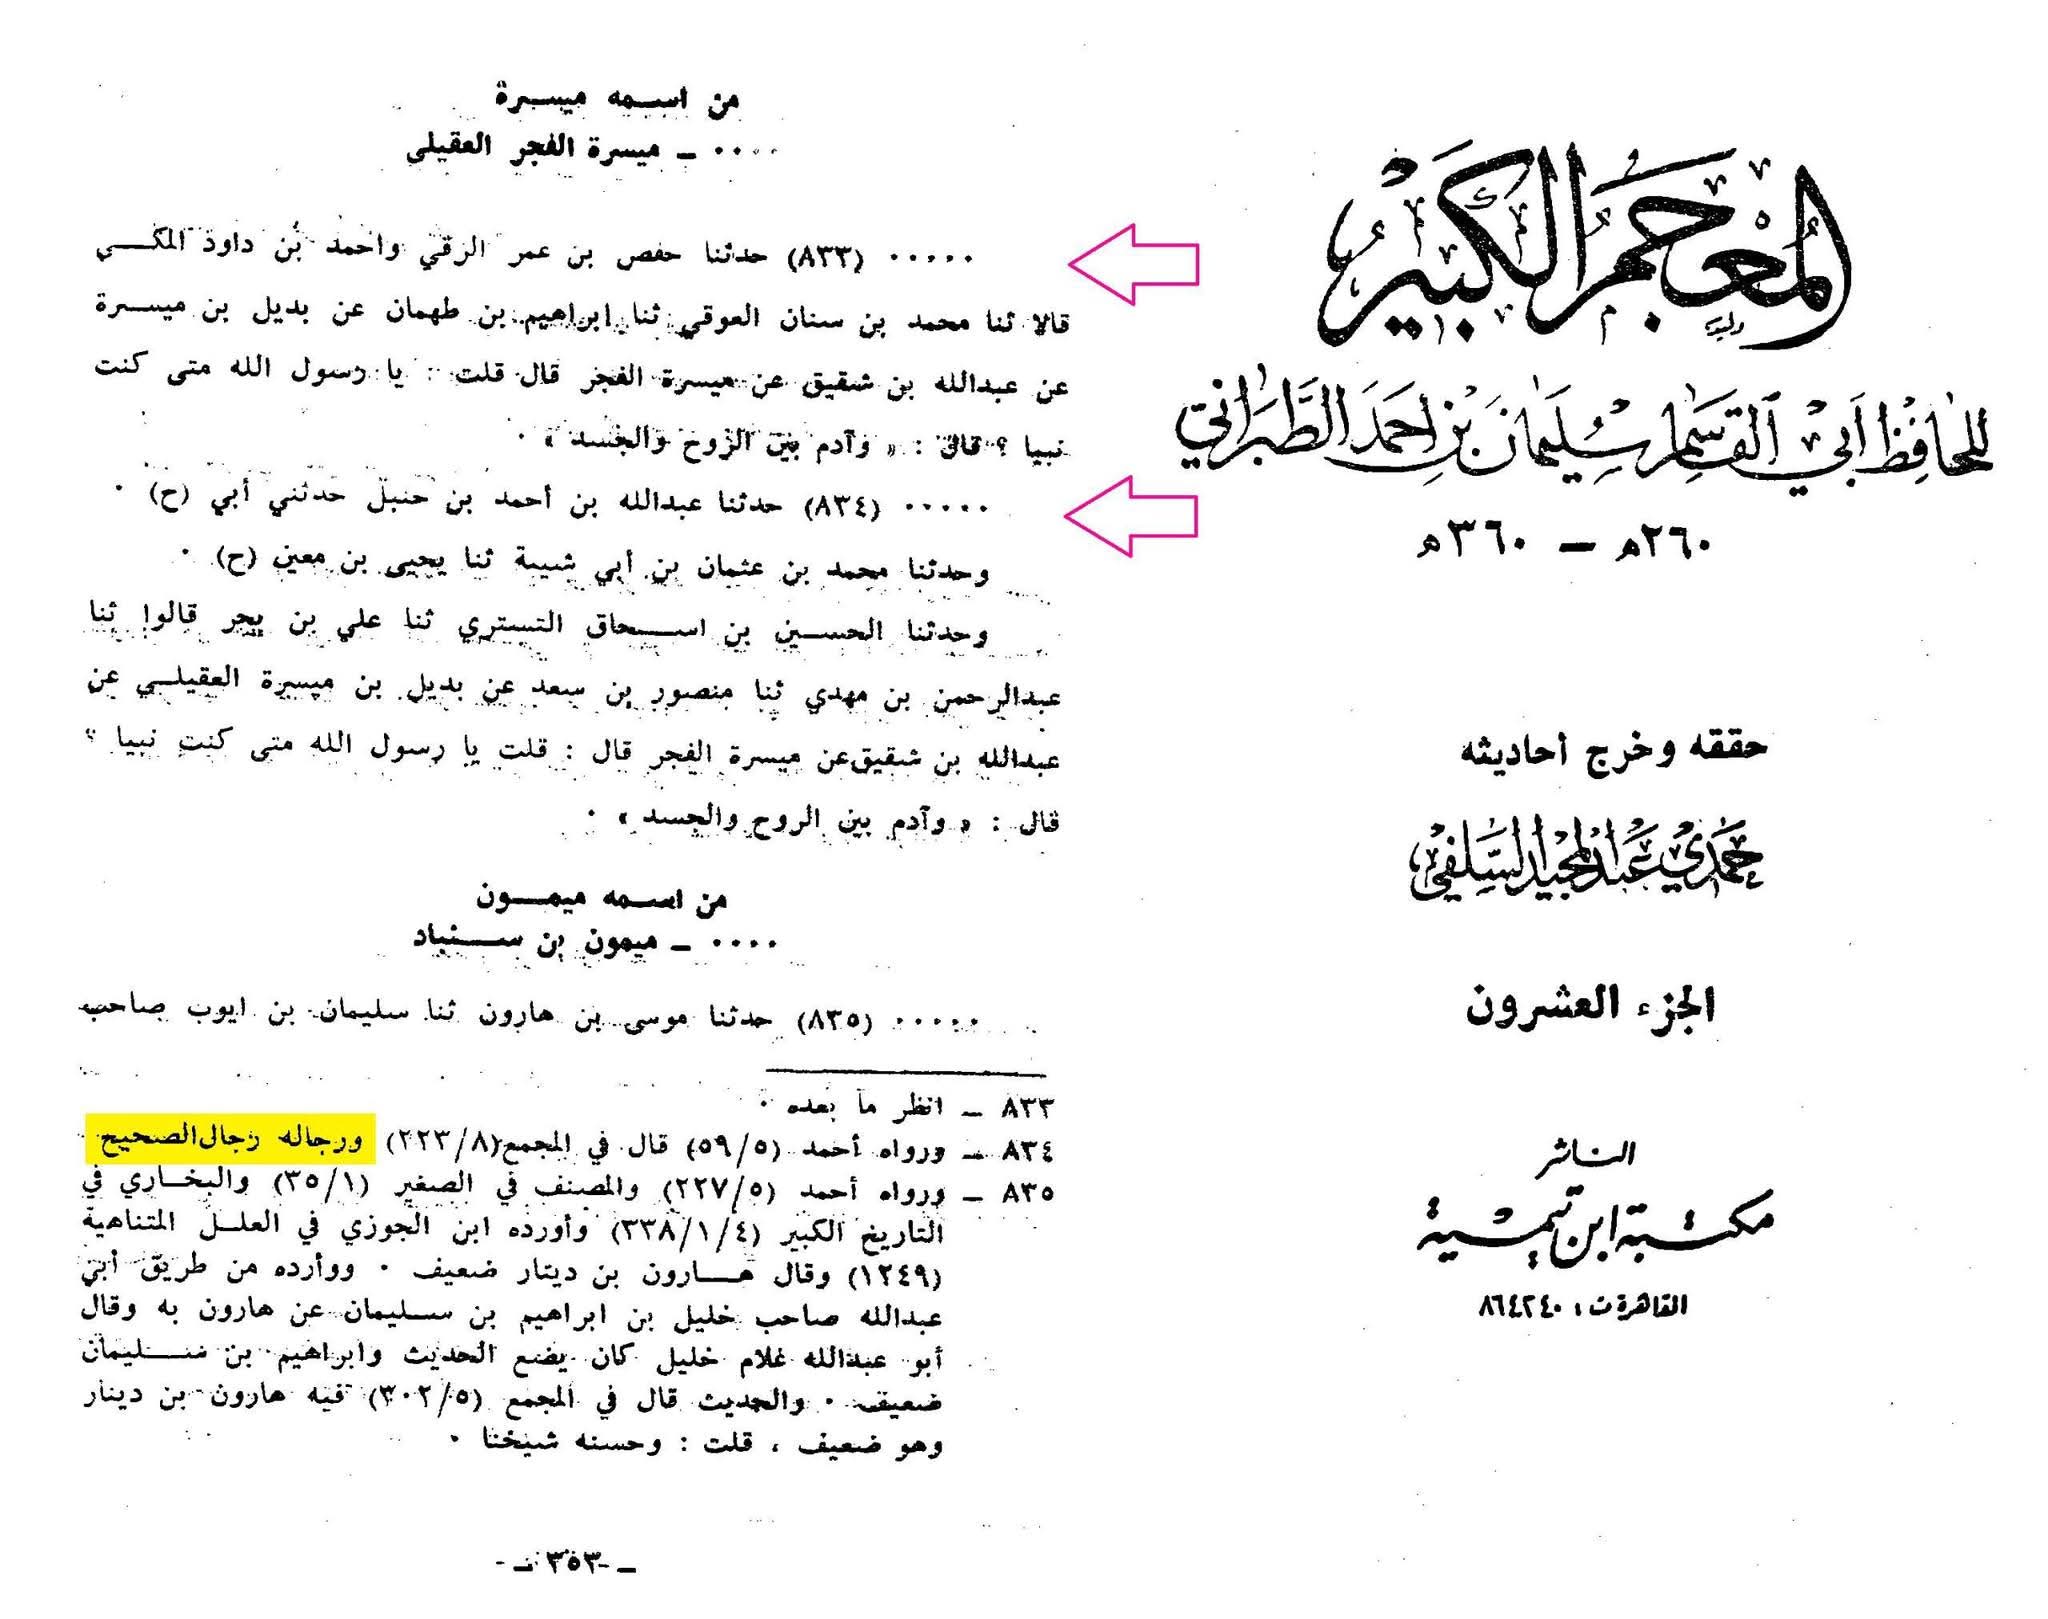 المعجم الكبير
للحافظ أبي القاسم سليمان بن احمد الطبراني
٢٦٠ه – ٣٦٠ه
حققه وخرج أحاديثه
حمدي عبد المجيد السلفي
الجزء العشرون
الناشر
مكتبة ابن تيمية
القاهرة ت : ٨٦٤٢٤٠
من اسمه ميسرة
٠٠٠٠ ـ ميسرة الفجر العقيلى
٠٠٠٠٠ (٨٣٣) حدثنا حفص بن عمر الرقي واحمد بن داود المكي
قالا ثنا محمد بن سنان العوقي ثنا ابراهيم بن طهمان عن بديل بن ميسرة
عن عبدالله بن شقيق عن ميسرة الفجر قال قلت : يا رسول الله متى كنت
نبيا ؟ قال : « وآدم بين الروح والجسد » ٠
٠٠٠٠٠ (٨٣٤) حدثنا عبدالله بن أحمد بن حنبل حدثني أبي (ح) ٠
وحدثنا محمد بن عثمان بن أبي شيبة ثنا يحيى بن معين (ح) ٠
وحدثنا الحسين بن اسحاق التستري ثنا علي بن بحر قالوا ثنا
عبدالرحمن بن مهدي ثنا منصور بن سعد عن بديل بن ميسرة العقيلي عن
عبدالله بن شقيق عن ميسرة الفجر قال : قلت يا رسول الله متى كنت نبيا ؟
قال : « وآدم بين الروح والجسد » ٠
من اسمه ميمون
٠٠٠٠ ـ ميمون بن سنباد
٠٠٠٠٠ (٨٣٥) حدثنا موسى بن هارون ثنا سليمان بن ايوب صاحب
٨٣٣ ـ انظر ما بعده ٠
٨٣٤ ـ ورواه أحمد (٥٩/٥) قال في المجمع (٢٢٣/٨) ورجاله رجال الصحيح
٨٣٥ ـ ورواه أحمد (٢٢٧/٥) والمصنف في الصغير (٣٥/١) والبخاري في
التاريخ الكبير (٣٣٨/١/٤) وأورده ابن الجوزي في العلل المتناهية
(١٢٤٩) وقال هارون بن دينار ضعيف ٠ ووأرده من طريق أبي
عبدالله صاحب خليل بن ابراهيم بن سليمان عن هارون به وقال
أبو عبدالله غلام خليل كان يضع الحديث وابراهيم بن سليمان
ضعيف ٠ والحديث قال في المجمع (٣٠٢/٥) فيه هارون بن دينار
وهو ضعيف ، قلت : وحسنه شيخنا ٠
ـ ٣٥٣ ـ